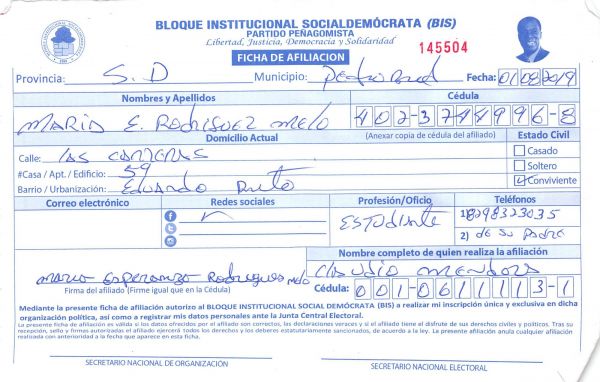 BLOQUE INSTITUCIONAL SOCIALDEMÓCRATA (BIS)
PARTIDO PEÑAGOMISTA
Libertad, Justicia, Democracia y Solidaridad
FICHA DE AFILIACION
145504
Provincia: S.D Municipio: Pedro Brand Fecha: 01/08/2019
Nombres y Apellidos Cédula
MARIA E. RODRIGUEZ MELO 402-3744996-8
Domicilio Actual (Anexar copia de cédula del afiliado) Estado Civil
Calle: LAS CARRERAS
Casado
#Casa / Apt. / Edificio: 59
Soltero
Barrio / Urbanización: Eduardo Brito
Conviviente
Correo electrónico Redes sociales Profesión/Oficio Teléfonos
ESTUDIANTE
1) 8298323035
2) de su padre
Nombre completo de quien realiza la afiliación
Maria Esperanza Rodriguez Melo CLAUDIO MENDOZA
Firma del afiliado (Firme igual que en la Cédula) Cédula: 001-0611113-1
Mediante la presente ficha de afiliación autorizo al BLOQUE INSTITUCIONAL SOCIAL DEMÓCRATA (BIS) a realizar mi inscripción única y exclusiva en dicha
organización política, así como a registrar mis datos personales ante la Junta Central Electoral.
La presente ficha de afiliación es válida si los datos ofrecidos por el afiliado son correctos, las declaraciones veraces y si el afiliado tiene el disfrute de sus derechos civiles y políticos. Tras su
recepción, sello y firmas autorizadas el afiliado ejercerá todos los derechos y los deberes estatutariamente sancionados, de acuerdo a la ley. La presente afiliación anula cualquier afiliación
realizada con anterioridad a la fecha que aparece en esta ficha.
SECRETARIO NACIONAL DE ORGANIZACIÓN SECRETARIO NACIONAL ELECTORAL